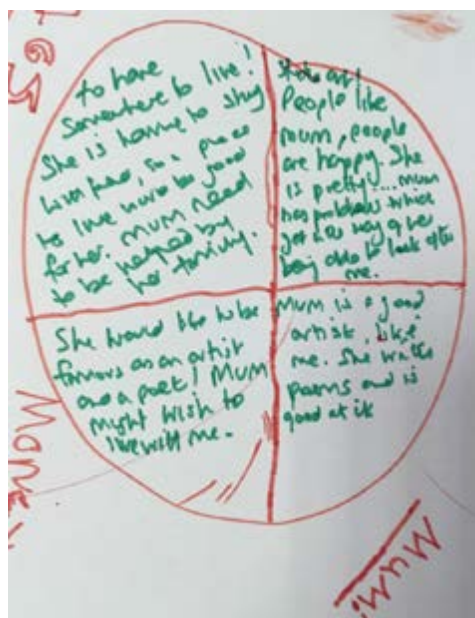 to have
somewhere to live!
She is having to stay
with friend, so a place
to live would be good
for her. Mum need
to be helped by
her family.
People like
mum, people
are happy. She
is pretty.... mum
has problems which
get in way of her
being able to look after
me.
She would like to be
famous as an artist
and a poet! Mum
might wish to
live with me.
Mum is a good
artist, like
me. She writes
poems and is
good at it
Mum